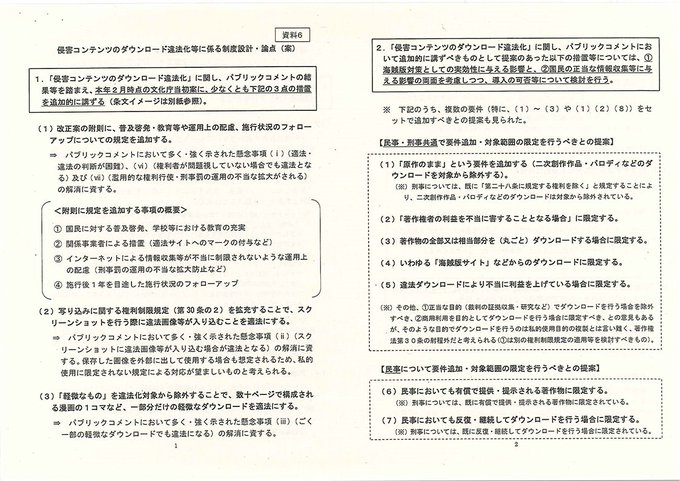 資料6
侵害コンテンツのダウンロード違法化等に係る制度設計・論点（案）
1．「侵害コンテンツのダウンロード違法化」に関し、パブリックコメントの結
果等を踏まえ、本年2月時点の文化庁当初案に、少なくとも下記の3点の措置
を追加的に講ずる（条文イメージは別紙参照）。
（1）改正案の附則に、普及啓発・教育等や運用上の配慮、施行状況のフォロー
アップについての規定を追加する。
⇒　パブリックコメントにおいて多く・強く示された懸念事項（ⅰ）（適法・
違法の判断が困難）、（ⅵ）（権利者が問題視していない場合でも違法とな
る）及び（ⅶ）（濫用的な権利行使・刑事罰の運用の不当な拡大がされる）
の解消に資する。
＜附則に規定を追加する事項の概要＞
① 国民に対する普及啓発、学校等における教育の充実
② 関係事業者による措置（適法サイトへのマークの付与など）
③ インターネットによる情報収集等が不当に制限されないような運用上
の配慮（刑事罰の運用の不当な拡大防止など）
④ 施行後1年を目途した施行状況のフォローアップ
（2）写り込みに関する権利制限規定（第30条の2）を拡充することで、スク
リーンショットを行う際に違法画像等が入り込むことを適法にする。
⇒　パブリックコメントにおいて多く・強く示された懸念事項（ⅱ）（スク
リーンショットに違法画像等が入り込む場合が違法となる）の解消に資
する。保存した画像を外部に出して使用する場合も想定されるため、私的
使用に限定されない規定による対応が望ましいものと考えられる。
（3）「軽微なもの」を違法化対象から除外することで、数十ページで構成され
る漫画の1コマなど、一部分だけの軽微なダウンロードを適法にする。
⇒　パブリックコメントにおいて多く・強く示された懸念事項（ⅲ）（ごく
一部の軽微なダウンロードでも違法になる）の解消に資する。
1
2．「侵害コンテンツのダウンロード違法化」に関し、パブリックコメントにお
いて追加的に講ずべきものとして提案のあった以下の措置等については、①
海賊版対策としての実効性に与える影響と、②国民の正当な情報収集等に与
える影響の両面を考慮しつつ、導入の可否等について検討を行う。
※　下記のうち、複数の要件（特に、（1）～（3）や（1）（2）（8））をセッ
トで追加すべきとの提案も見られた。
【民事・刑事共通で要件追加・対象範囲の限定を行うべきとの提案】
（1）「原作のまま」という要件を追加する（二次創作作品・パロディなどのダ
ウンロードを対象から除外する）。
（※）刑事については、既に「第二十八条に規定する権利を除く」と規定することによ
り、二次創作作品・パロディなどのダウンロードは対象から除外されている。
（2）「著作権者の利益を不当に害することとなる場合」に限定する。
（3）著作物の全部又は相当部分を（丸ごと）ダウンロードする場合に限定する。
（4）いわゆる「海賊版サイト」などからのダウンロードに限定する。
（5）違法ダウンロードにより不当に利益を上げている場合に限定する。
（※）その他、①正当な目的（裁判の証拠収集・研究など）でダウンロードを行う場合を除外
すべき、②商用利用を目的としてダウンロードを行う場合に限定すべき、との意見もある
が、そのような目的でダウンロードを行うのは私的使用目的の複製とは言い難く、著作権
法第30条の射程外だと考えられる（①は別の権利制限規定の適用等を検討すべきもの）。
【民事について要件追加・対象範囲の限定を行うべきとの提案】
（6）民事においても有償で提供・提示される著作物に限定する。
（※）刑事については、既に有償で提供・提示される著作物に限定されている。
（7）民事においても反復・継続してダウンロードを行う場合に限定する。
（※）刑事については、既に反復・継続してダウンロードを行う場合に限定されている。
2